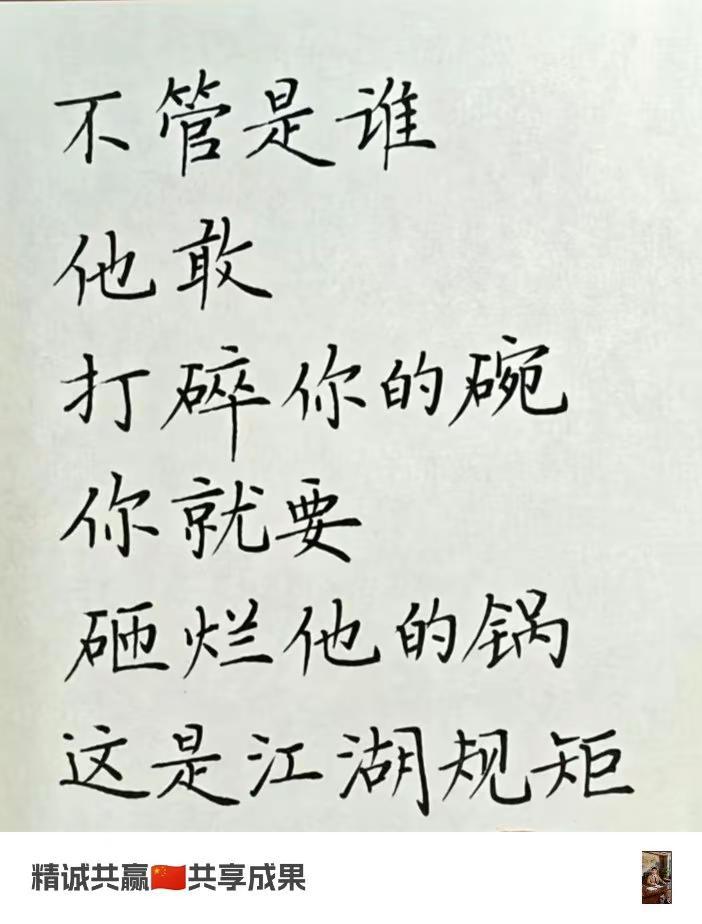 不管是谁
他敢
打碎你的碗
你就要
砸烂他的锅
这是江湖规矩
精诚共赢🇨🇳共享成果